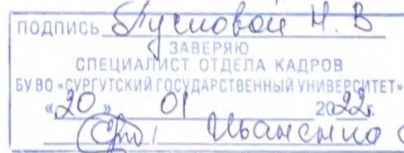 ПОДПИСЬ Пусковой Н. В
ЗАВЕРЯЮ
СПЕЦИАЛИСТ ОТДЕЛА КАДРОВ
БУ ВО «СУРГУТСКИЙ ГОСУДАРСТВЕННЫЙ УНИВЕРСИТЕТ»
«20» 01 2022г.